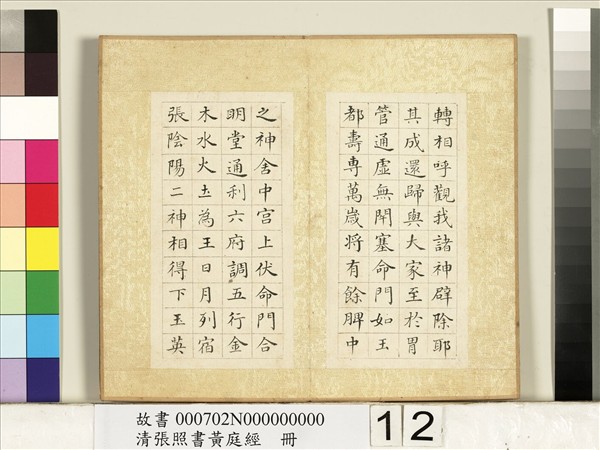 轉相呼觀我諸神辟除耶
其成還歸與大家至於胃
管通虛無閇塞命門如玉
都壽専萬歲將有餘脾中
之神舍中宫上伏命門合
明堂通利六府調五行金
木水火圡為王日月列宿
張陰陽二神相得下玉英
故書 000702N000000000
清張照書黃庭經　冊
12